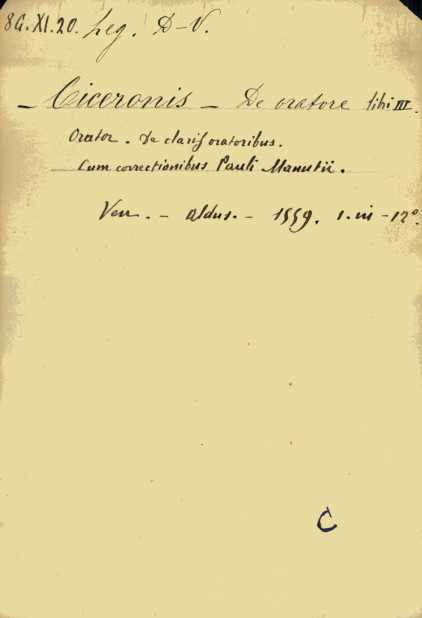 86.XI.20. Leg. D-V.
- Ciceronis - De oratore libi III.
Orator. De claris oratoribus.
Cum correctionibus Pauli Manutii.
Ven. - Aldus. - 1559. 1. in - 12°.
C